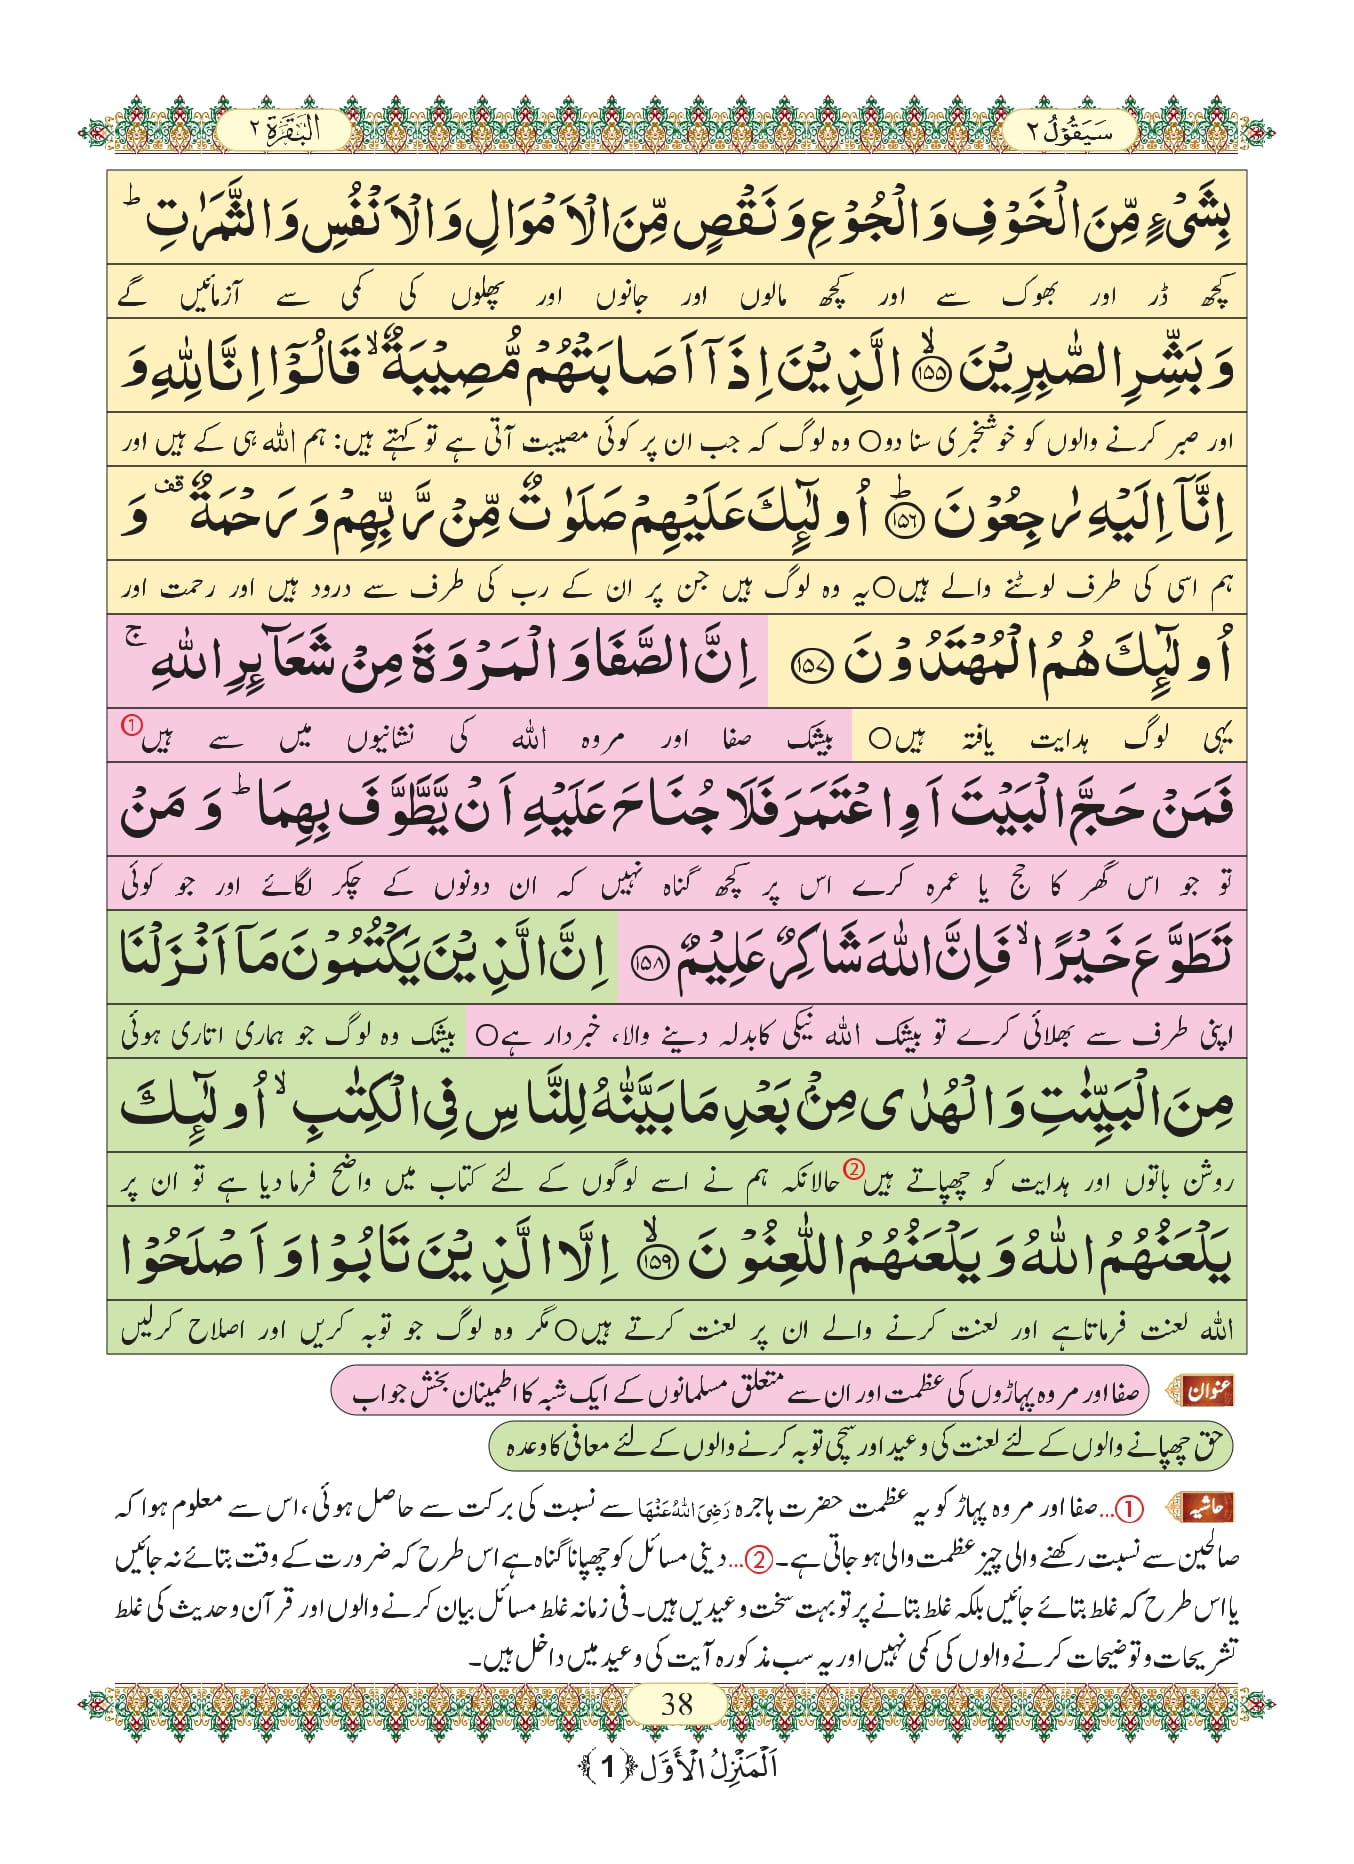 سَیَقُوْلُ ۲
اَلْبَقَرَة ۲
بِشَیْءٍ مِّنَ الْخَوْفِ وَ الْجُوْعِ وَ نَقْصٍ مِّنَ الْاَمْوَالِ وَ الْاَنْفُسِ وَ الثَّمَرٰتِ ؕ
کچھ ڈر اور بھوک سے اور کچھ مالوں اور جانوں اور پھلوں کی کمی سے آزمائیں گے
وَ بَشِّرِ الصّٰبِرِیْنَ ﴿۱۵۵﴾ۙ الَّذِیْنَ اِذَاۤ اَصَابَتْهُمْ مُّصِیْبَةٌ ۙ قَالُوْۤا اِنَّا لِلّٰهِ وَ
اور صبر کرنے والوں کو خوشخبری سنا دو○ وہ لوگ کہ جب ان پر کوئی مصیبت آتی ہے تو کہتے ہیں: ہم اللہ ہی کے ہیں اور
اِنَّاۤ اِلَیْهِ رٰجِعُوْنَ ﴿۱۵۶﴾ؕ اُولٰٓىٕكَ عَلَیْهِمْ صَلَوٰتٌ مِّنْ رَّبِّهِمْ وَ رَحْمَةٌ قف وَ
ہم اسی کی طرف لوٹنے والے ہیں○ یہ وہ لوگ ہیں جن پر ان کے رب کی طرف سے درود ہیں اور رحمت اور
اُولٰٓىٕكَ هُمُ الْمُهْتَدُوْنَ ﴿۱۵۷﴾ اِنَّ الصَّفَا وَ الْمَرْوَةَ مِنْ شَعَآىٕرِ اللّٰهِ ۚ
یہی لوگ ہدایت یافتہ ہیں○ بیشک صفا اور مروہ اللہ کی نشانیوں میں سے ہیں①
فَمَنْ حَجَّ الْبَیْتَ اَوِ اعْتَمَرَ فَلَا جُنَاحَ عَلَیْهِ اَنْ یَّطَّوَّفَ بِهِمَا ؕ وَ مَنْ
تو جو اس گھر کا حج یا عمرہ کرے اس پر کچھ گناہ نہیں کہ ان دونوں کے چکر لگائے اور جو کوئی
تَطَوَّعَ خَیْرًا ۙ فَاِنَّ اللّٰهَ شَاكِرٌ عَلِیْمٌ ﴿۱۵۸﴾ اِنَّ الَّذِیْنَ یَكْتُمُوْنَ مَاۤ اَنْزَلْنَا
اپنی طرف سے بھلائی کرے تو بیشک اللہ نیکی کابدلہ دینے والا، خبردار ہے○ بیشک وہ لوگ جو ہماری اتاری ہوئی
مِنَ الْبَیِّنٰتِ وَ الْهُدٰى مِنْۢ بَعْدِ مَا بَیَّنّٰهُ لِلنَّاسِ فِی الْكِتٰبِ ۙ اُولٰٓىٕكَ
روشن باتوں اور ہدایت کو چھپاتے ہیں② حالانکہ ہم نے اسے لوگوں کے لئے کتاب میں واضح فرمادیا ہے تو ان پر
یَلْعَنُهُمُ اللّٰهُ وَ یَلْعَنُهُمُ اللّٰعِنُوْنَ ﴿۱۵۹﴾ۙ اِلَّا الَّذِیْنَ تَابُوْا وَ اَصْلَحُوْا
اللہ لعنت فرماتاہے اور لعنت کرنے والے ان پر لعنت کرتے ہیں○ مگر وہ لوگ جو توبہ کریں اور اصلاح کرلیں
عنوان صفا اور مروہ پہاڑوں کی عظمت اور ان سے متعلق مسلمانوں کے ایک شبہ کا اطمینان بخش جواب
حق چھپانے والوں کے لئے لعنت کی وعید اور سچی توبہ کرنے والوں کے لئے معافی کا وعدہ
حاشیہ ①...صفا اور مروہ پہاڑ کو یہ عظمت حضرت ہاجرہ رَضِیَ اللهُ عَنْهَا سے نسبت کی برکت سے حاصل ہوئی، اس سے معلوم ہوا کہ
صالحین سے نسبت رکھنے والی چیز عظمت والی ہو جاتی ہے۔ ②...دینی مسائل کو چھپانا گناہ ہے اس طرح کہ ضرورت کے وقت بتائے نہ جائیں
یا اس طرح کہ غلط بتائے جائیں بلکہ غلط بتانے پر تو بہت سخت وعیدیں ہیں۔ فی زمانہ غلط مسائل بیان کرنے والوں اور قرآن و حدیث کی غلط
تشریحات و توضیحات کرنے والوں کی کمی نہیں اور یہ سب مذکورہ آیت کی وعید میں داخل ہیں۔
38
اَلْمَنْزِلُ الْأَوَّل ﴿1﴾